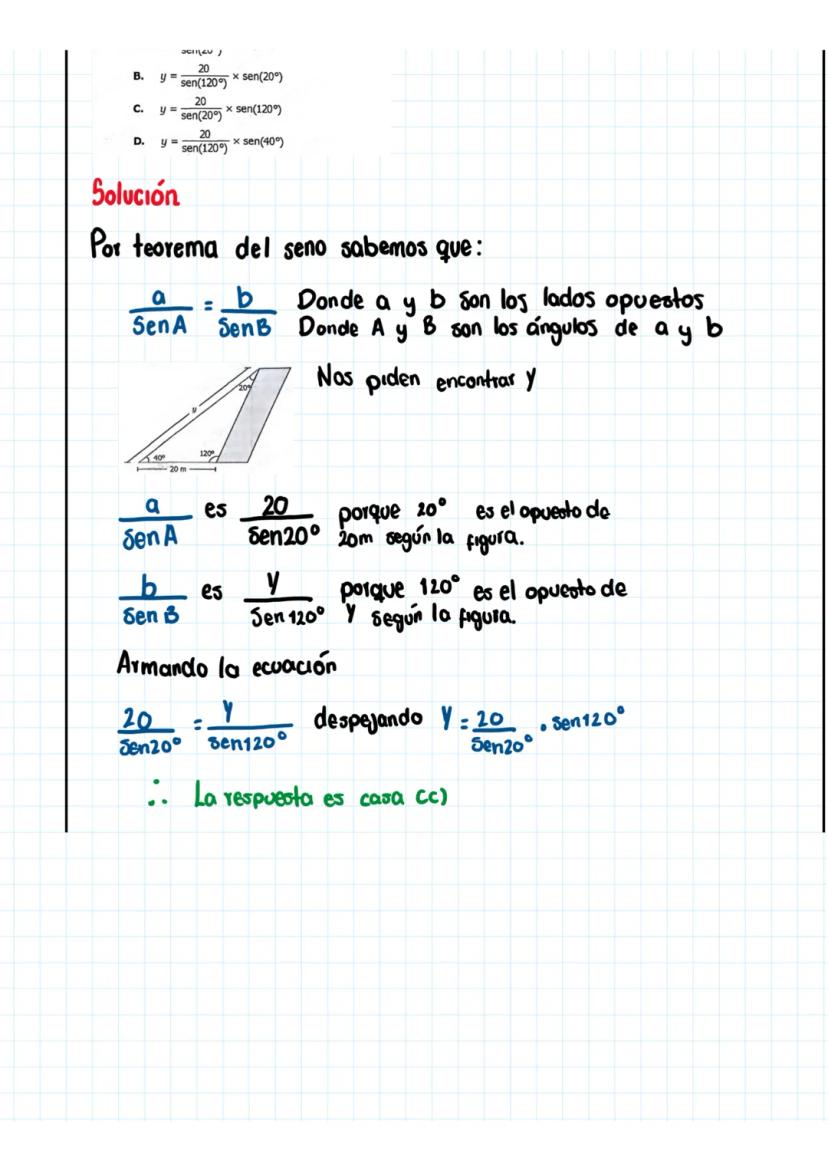 sen(20°)
B. y = 20/sen(120°) × sen(20°)
C. y = 20/sen(20°) × sen(120°)
D. y = 20/sen(120°) × sen(40°)
Solución
Por teorema del seno sabemos que:
a/Sen A = b/Sen B Donde a y b son los lados opuestos
Donde A y B son los ángulos de a y b
Nos piden encontrar y
20°
y
40°
120°
20 m
a/Sen A es 20/Sen20° porque 20° es el opuesto de
20m según la figura.
b/Sen B es y/Sen 120° porque 120° es el opuesto de
Y según la figura.
Armando la ecuación
20/Sen20° = Y/Sen120° despejando Y = 20/Sen20° . Sen120°
∴ La respuesta es casa CC)